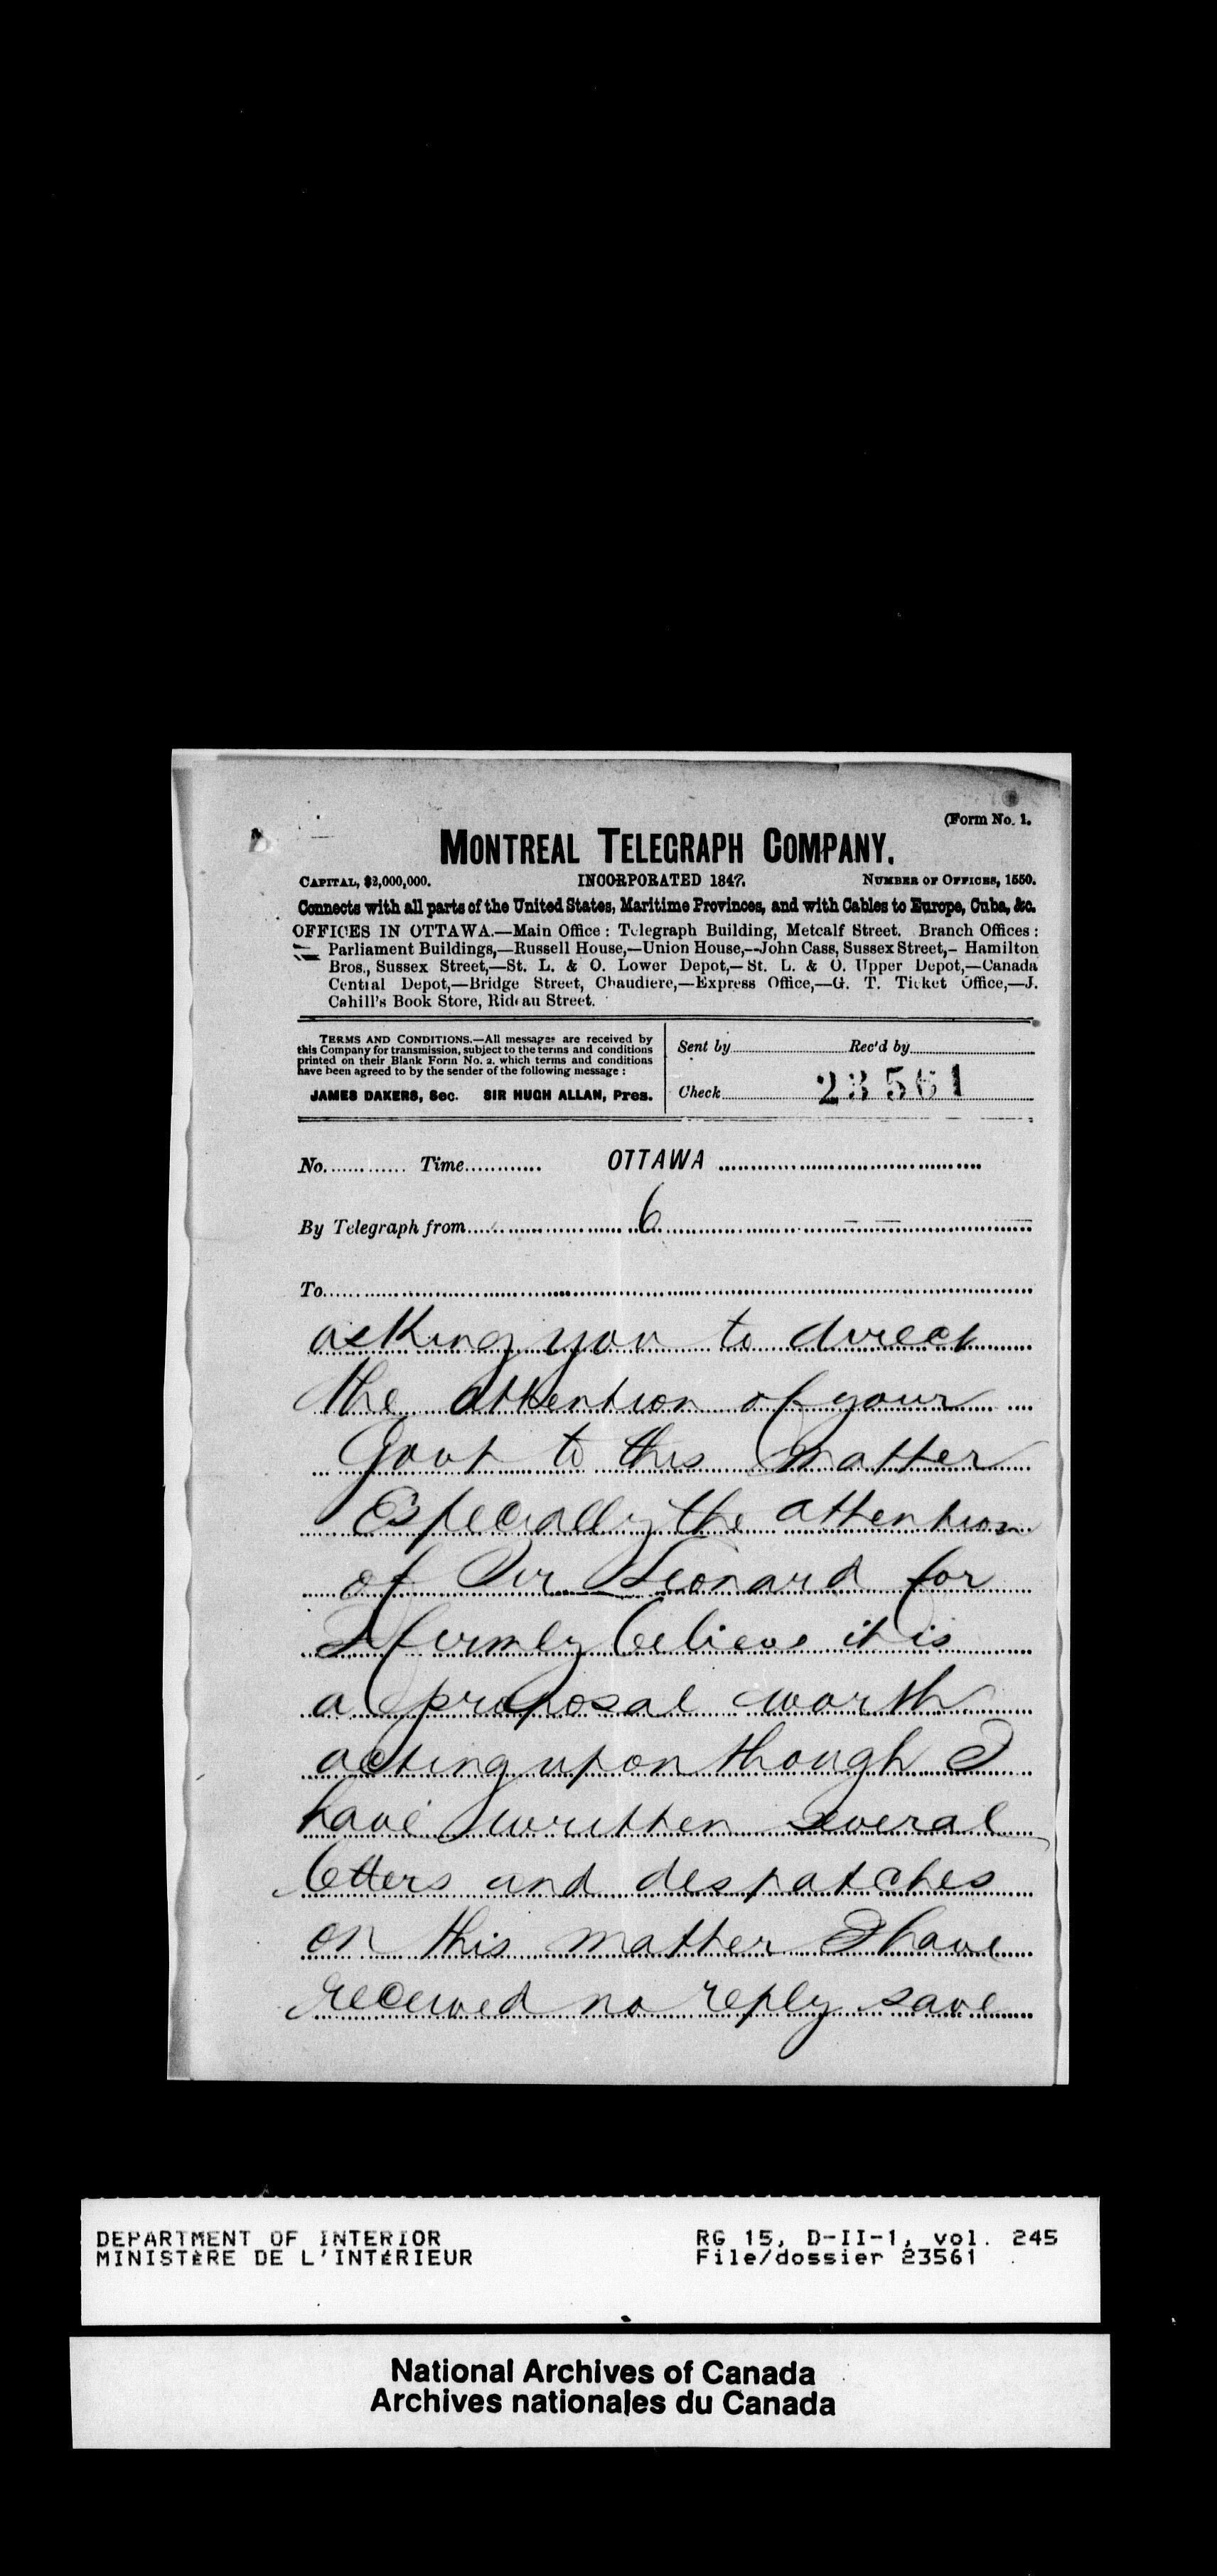 (Form No. 1.
MONTREAL TELEGRAPH COMPANY.
CAPITAL, $2,000,000. INCORPORATED 1847. NUMBER OF OFFICES, 1550.
Connects with all parts of the United States, Maritime Provinces, and with Cables to Europe, Cuba, &c.
OFFICES IN OTTAWA.—Main Office: Telegraph Building, Metcalf Street. Branch Offices:
Parliament Buildings,—Russell House,—Union House,—John Cass, Sussex Street,—Hamilton
Bros., Sussex Street,—St. L. & O. Lower Depot,—St. L. & O. Upper Depot,—Canada
Central Depot,—Bridge Street, Chaudiere,—Express Office,—G. T. Ticket Office,—J.
Cahill's Book Store, Rideau Street.
TERMS AND CONDITIONS.—All messages are received by
this Company for transmission, subject to the terms and conditions
printed on their Blank Form No. 2, which terms and conditions
have been agreed to by the sender of the following message:
JAMES DAKERS, Sec. SIR HUGH ALLAN, Pres.
Sent by Rec'd by
Check 23561
No. Time OTTAWA
By Telegraph from 6
To
asking you to direct
the attention of your
Govt to this matter
Especially the attention
of Sir Leonard for
I firmly believe it is
a proposal worth
acting upon though I
have written several
letters and despatches
on this matter I have
received no reply save
DEPARTMENT OF INTERIOR
MINISTÈRE DE L'INTÉRIEUR
RG 15, D-II-1, vol. 245
File/dossier 23561
National Archives of Canada
Archives nationales du Canada